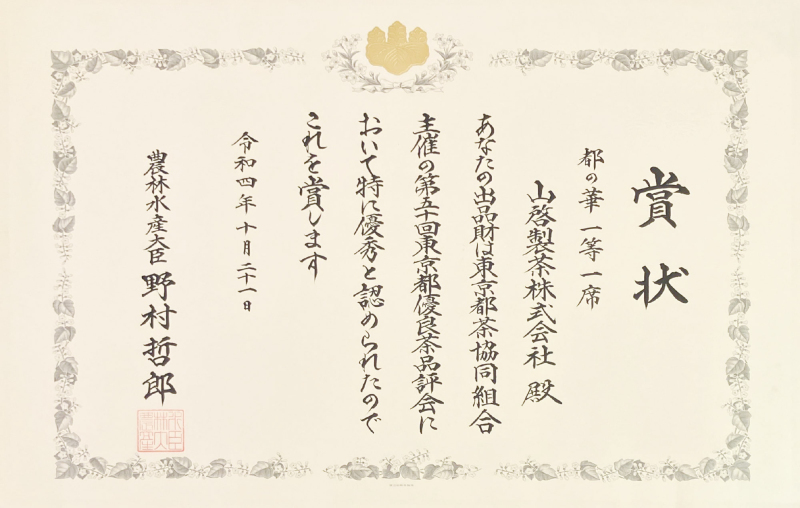 賞状
都の華 一等一席
山啓製茶株式会社 殿
あなたの出品財は東京都茶協同組合
主催の第五十回東京都優良茶品評会に
おいて特に優秀と認められたので
これを賞します
令和四年十月二十一日
農林水産大臣 野村哲郎